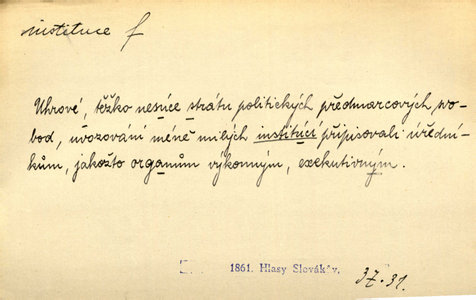 instituce f
Uhrové, těžko nesúce strátu politických předmarcových svo-
bod, uvozování méně milých institúcí připisovali úřední-
kům, jakožto organům výkonným, exekutivným.
1861. Hlasy Slovák v.
37.31.